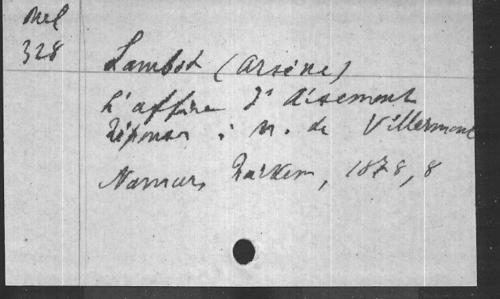 Mel
328
Lambot (Arsène)
L'affaire d'Aisemont
Réponse à M. de Villermont
Namur, 1878, 8